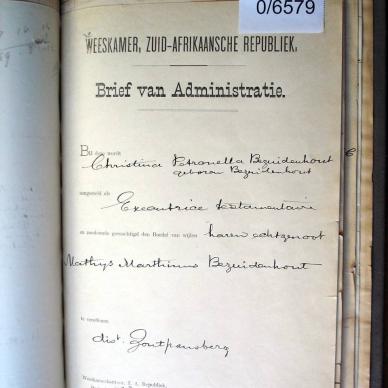 0/6579
WEESKAMER, ZUID-AFRIKAANSCHE REPUBLIEK.
Brief van Administratie.
Bij deze wordt
Christina Petronella Bezuidenhout
geboren Bezuidenhout
aangesteld als
Executrice testamentaire
en zoodoende gemachtigd den Boedel van wijlen haren echtgenoot
Mathys Marthinus Bezuidenhout
te
dist. Zoutpansberg
Weeskamer Z. A. Republiek,